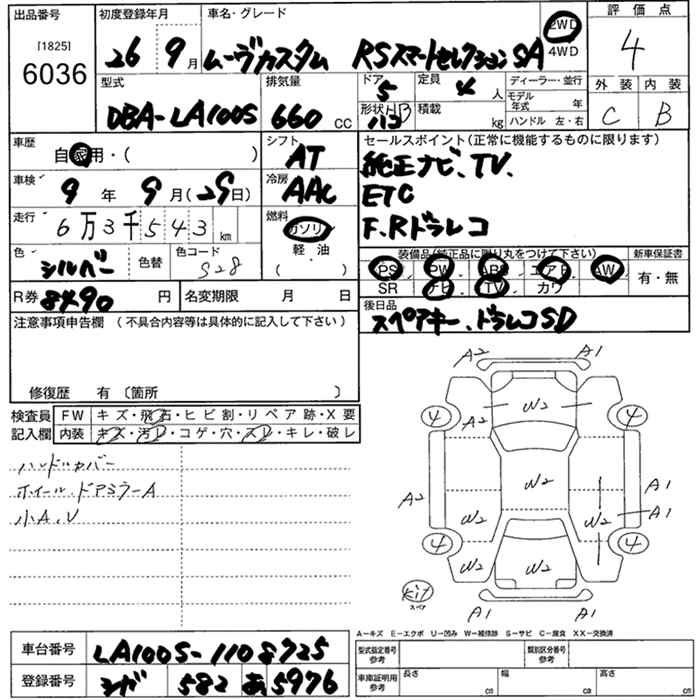 出品番号 初度登録年月 車名・グレード 評価点
[1825]
6036 26 9月 ムーヴカスタム RSスマートセレクションSA 2WD 4WD 4
型式 排気量 ドア 定員 ディーラー・並行 外装 内装
DBA-LA100S 660 CC 5 4人 モデル年式 年 C B
形状 積載 kg ハンドル 左・右
車歴 自家用・( ) シフト AT セールスポイント(正常に機能するものに限ります)
純正ナビ、TV、
車検 9年 9月(29日) 冷房 AAC ETC
走行 6万3千543km 燃料 ガソリン 軽・油 F.Rドラレコ
色 シルバー 色替 色コード S28 ( ) 装備品(純正品に限り丸をつけて下さい) 新車保証書
PS PW ABS エアB AW 有・無
R券 8490円 名変期限 月 日 SR ナビ TV カワ
注意事項申告欄 (不具合内容等は具体的に記入して下さい) 後日品
スペアキー、ドラレコSD
修復歴 有 〔箇所 〕
検査員 FW キズ・飛石・ヒビ割・リペア跡・X要
記入欄 内装 キズ・汚レ・コゲ・穴・スレ・キレ・破レ
ハンドルカバー
ホイール、ドアミラーA
小A、U
A2 A1
4 A2 W2 4
A2 W2 A1
W2 W2 A1
4 W2 W2 4
Kit
スペア A1 A1
A-キズ E-エクボ U-凹み W-補修跡 S-サビ C-腐食 XX-交換済
車台番号 LA100S-1108725 型式指定番号 参考 類別区分番号 参考
登録番号 シガ 582 あ5976 車庫証明用 参考 長さ cm 幅 cm 高さ cm